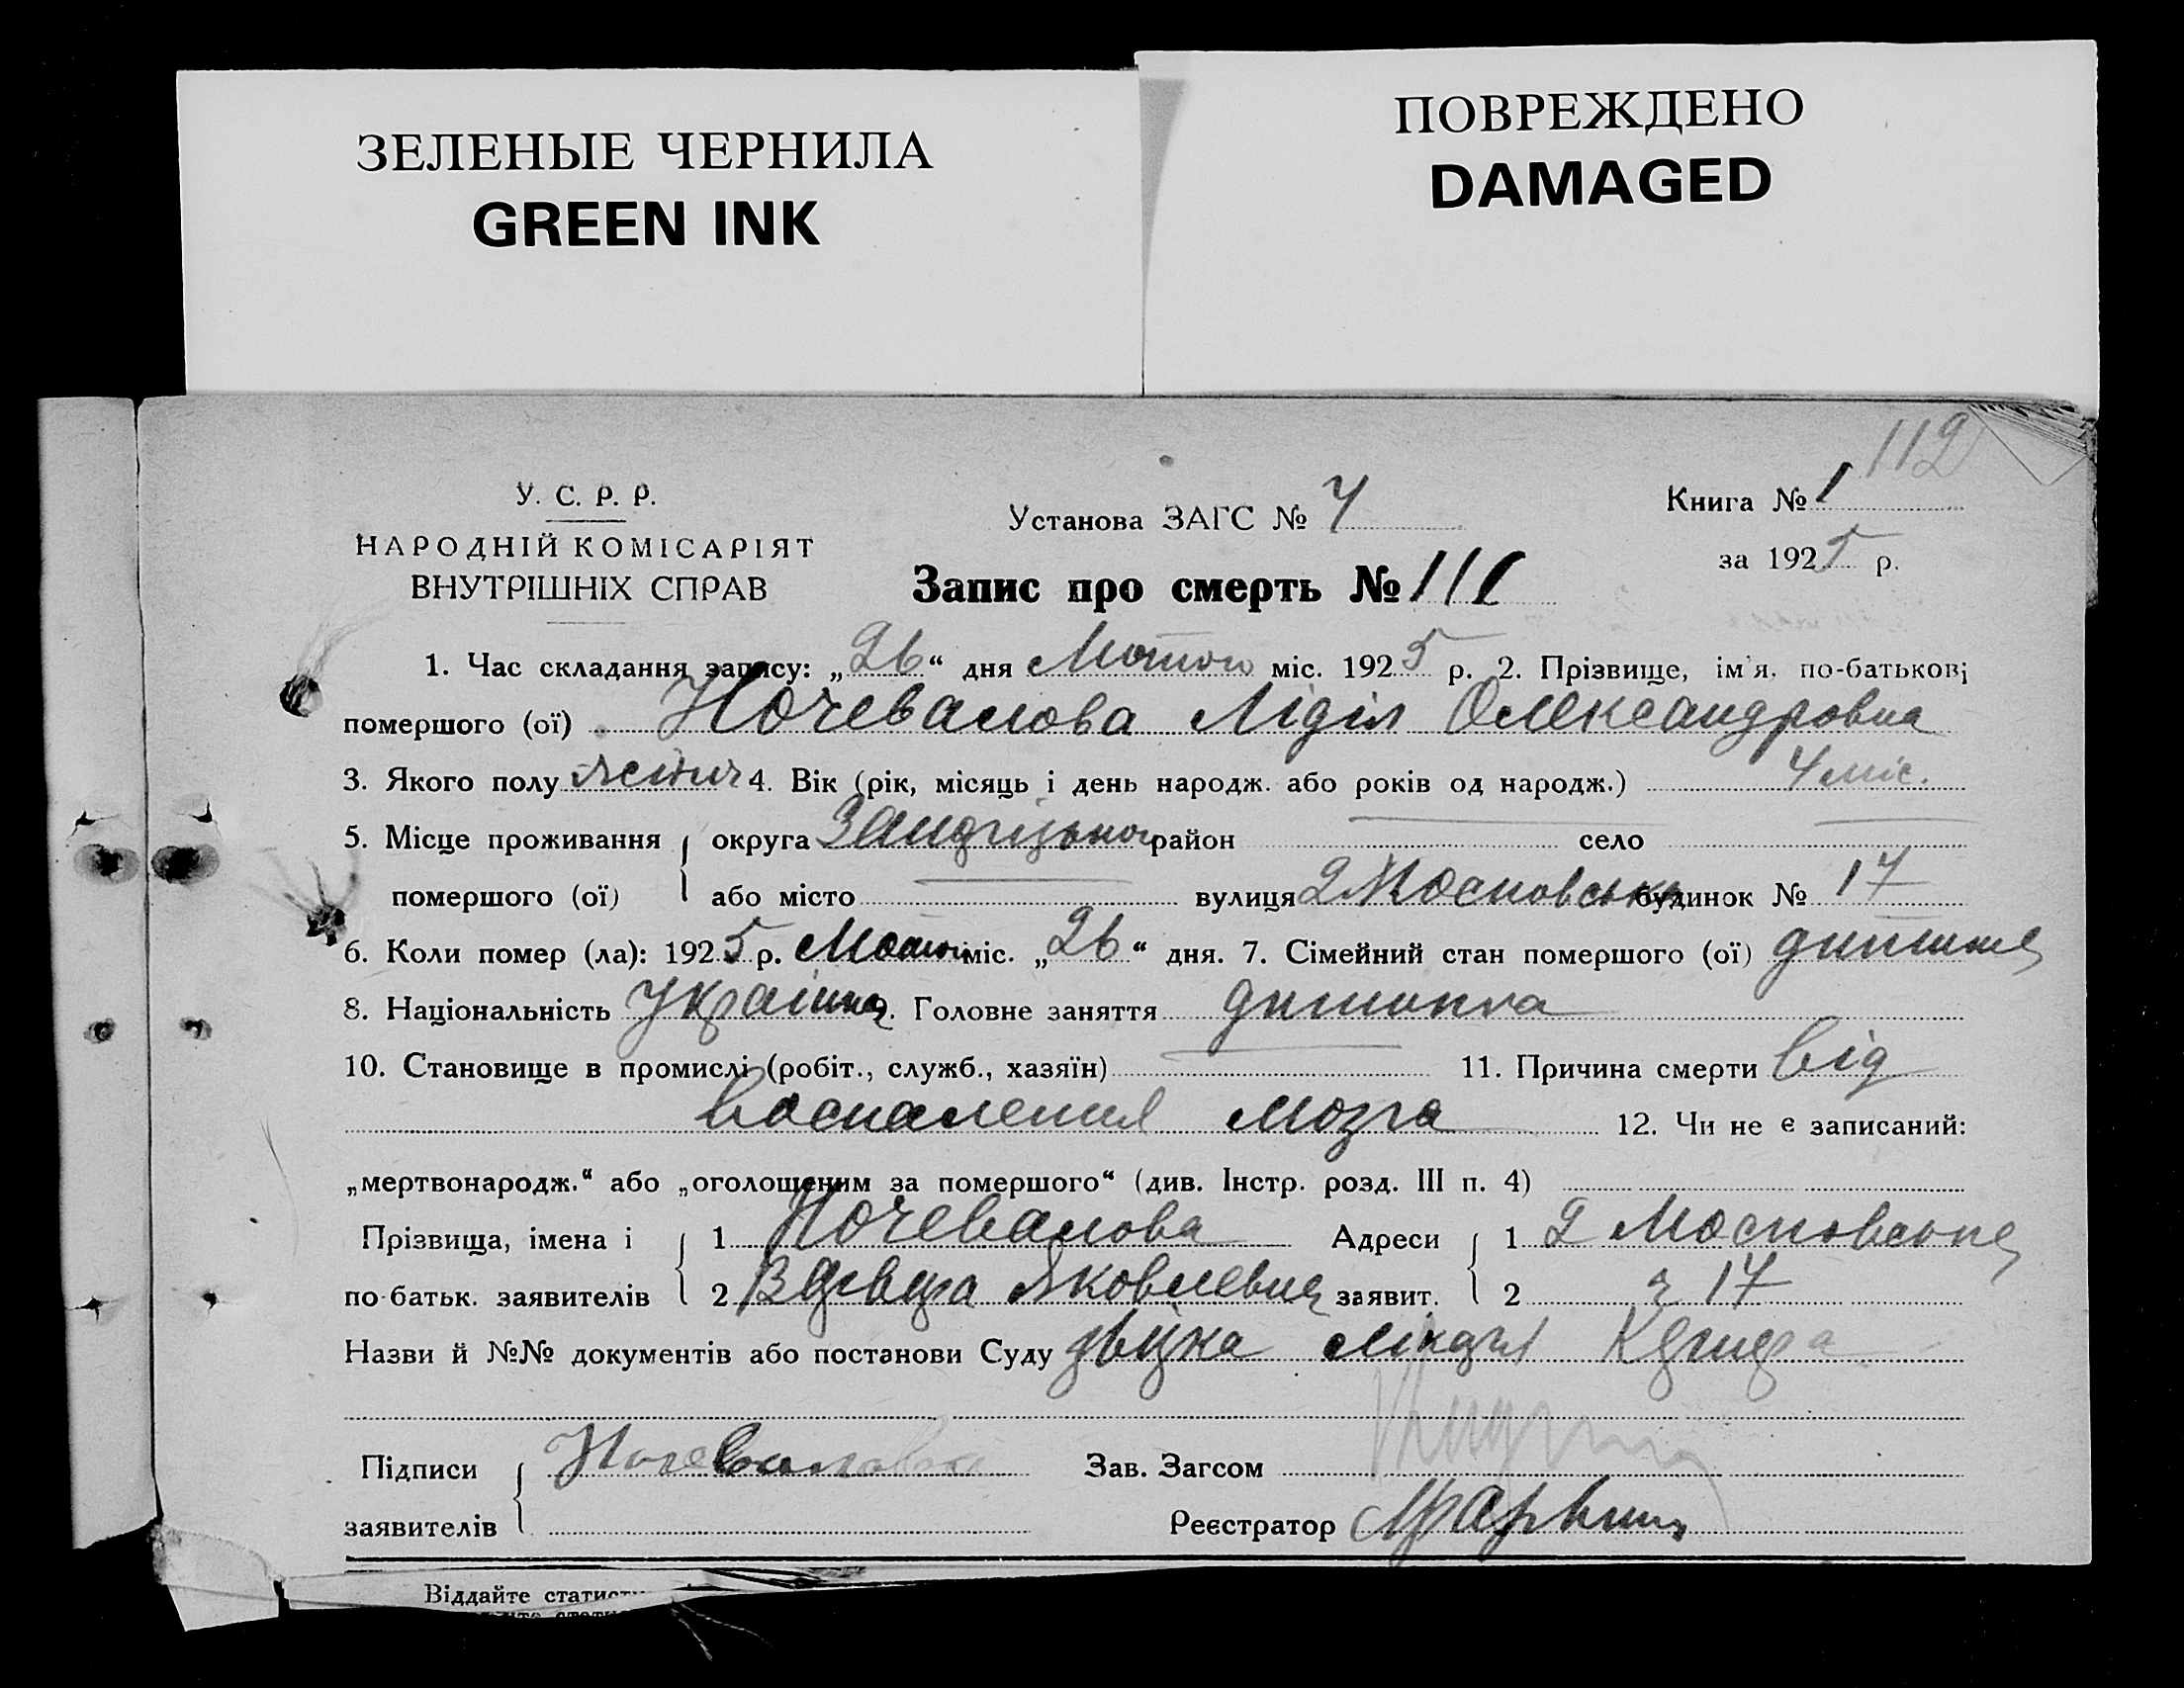 ЗЕЛЕНЫЕ ЧЕРНИЛА
GREEN INK
ПОВРЕЖДЕНО
DAMAGED
112
У. С. Р. Р.
НАРОДНІЙ КОМІСАРІЯТ
ВНУТРІШНІХ СПРАВ
Установа ЗАГС №
Книга № 1
за 1925 р.
Запис про смерть № 111
1. Час складання запису: „26“ дня Лютого міс. 1925 р. 2. Прізвище, ім'я, по-батькові
помершого (ої) Ночевалова Лідія Олександровна
3. Якого полу жіноч 4. Вік (рік, місяць і день народж. або років од народж.) 4 міс.
5. Місце проживання округа район село
помершого (ої) або місто вулиця 2 Московська будинок № 17
6. Коли помер (ла): 1925 р. Лютого міс. „26“ дня. 7. Сімейний стан помершого (ої) дитина
8. Національність Українка 9. Головне заняття дитина
10. Становище в промислі (робіт., служб., хазяїн) 11. Причина смерти від
воспаления мозга 12. Чи не є записаний:
„мертвонародж.“ або „оголошеним за помершого“ (див. Інстр. розд. III п. 4)
Прізвища, імена і 1 Ночевалова Адреси 1 2 Московська
по-батьк. заявителів 2 Яковлевна заявит. 2 17
Назви й №№ документів або постанови Суду
Підписи Ночевалова Зав. Загсом
заявителів Реєстратор
Віддайте статист